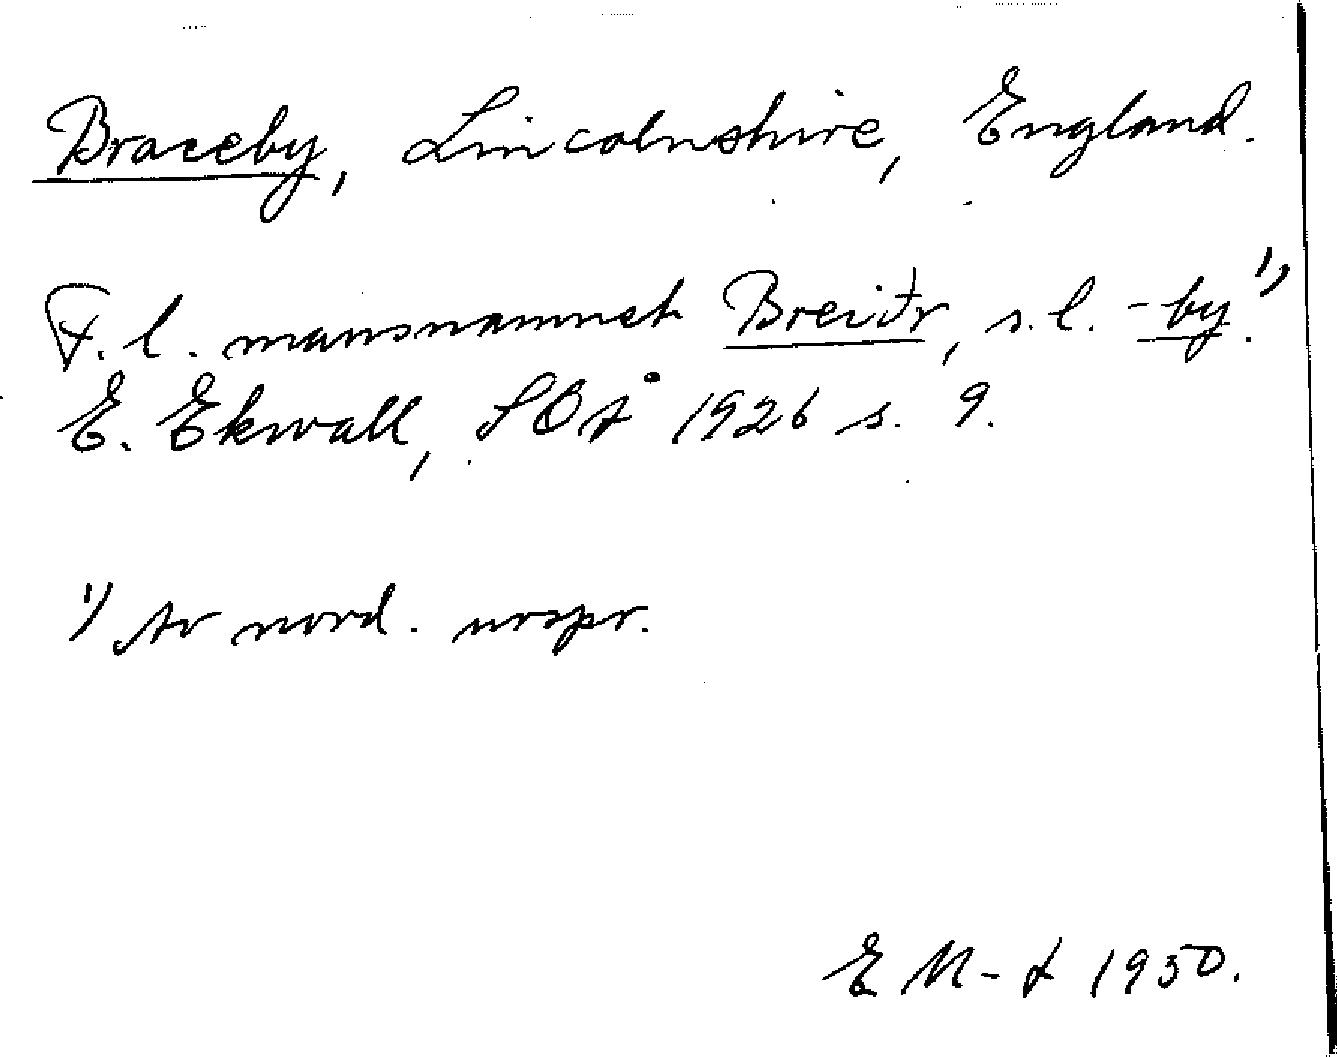 Braceby, Lincolnshire, England.
F. l. mansnamnet Breiðr, s. l. -by.¹⁾
E. Ekwall, SOÅ 1926 s. 9.
¹⁾ Av nord. urspr.
E M-t 1950.